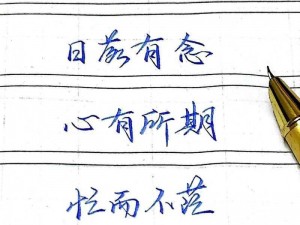 日暮有念
心有所期
忙而不茫